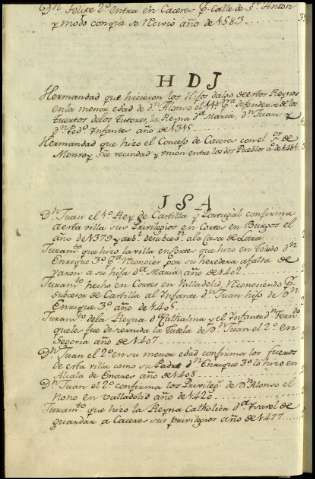 Dn. Felipe 2º entra en Caceres pr. Calle de Sn. Anton
y modo con que se recivio año de 1583
H D J
Hermandad que hicieron los Hijos dalgo de estos Reynos
en la menor edad de Dn. Alonso el
tuertos de los Tutores, la Reyna Da. Maria, Dn. Juan y
Dn. Pedro Infantes año de 1315
Hermandad que hizo el Concejo de Caceres con el de
Monroy, de vecindad y union entre los dos Pueblos
J S A
Dn. Juan el 1º Rey de Castilla y Portugal confirma
a esta villa sus Privilegios en Cortes en Burgos el
año de 1379
Juramto. que hizo la villa en Corte que hizo en Toledo Dn.
Enrique 3º pa. reconocer por su heredera a falta de
varon a su hija Da. Maria año de 1402
Juramto. hecho en Cortes en Valladolid, reconociendo pr.
subcesor de Castilla al Infante Dn. Juan hijo de Dn.
Enrique 3º año de 1405
Juramto. de la Reyna Da. Cathalina y el Infante Dn. Fernando
quando les fue deferida la tutela de Dn. Juan el 2º en
Segovia año de 1407
Dn. Juan el 2º en su menor edad confirma los fueros
de esta villa como su Padre Dn. Enrique 3º lo hizo en
Alcala de Enares año de 1408
Dn. Juan el 2º confirma los Privilegs. de Dn. Alonso el
Nono en Valladolid año de 1420
Juramto. que hizo la Reyna Catholica Da. Isavel de
guardar a Caceres sus privilegios año de 1477